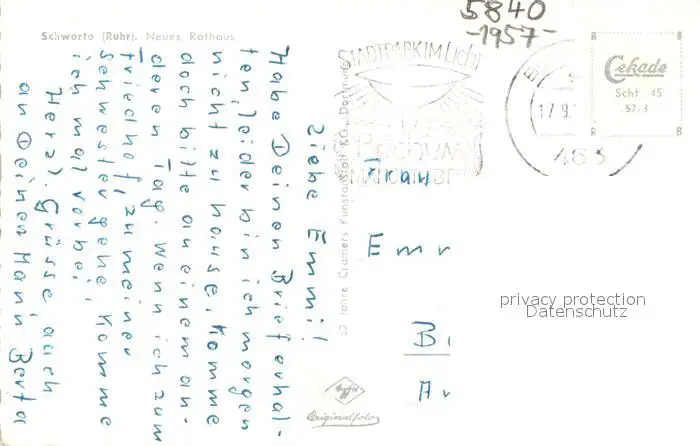 5840
-1957-
Schwerte (Ruhr). Neues Rathaus
STADTPARK IM Licht
BOCHUM
17.9.
463
Cekade
Schf 45
57.3
Liebe Emmi!
Habe Deinen Brief erhal-
ten, leider bin ich morgen
nicht zu hause. Komme
doch bitte an einem an-
deren Tag. Wenn ich zum
Friedhof, zu meiner
Schwester gehe, komme
ich mal vorbei.
Herzl. Grüsse, auch
an Deinen Mann Berta
50 Jahre Cramers Kunstanstalt KG., Dortmund
Frau
Emm
B
privacy protection
Datenschutz
Agfa
Originalfoto